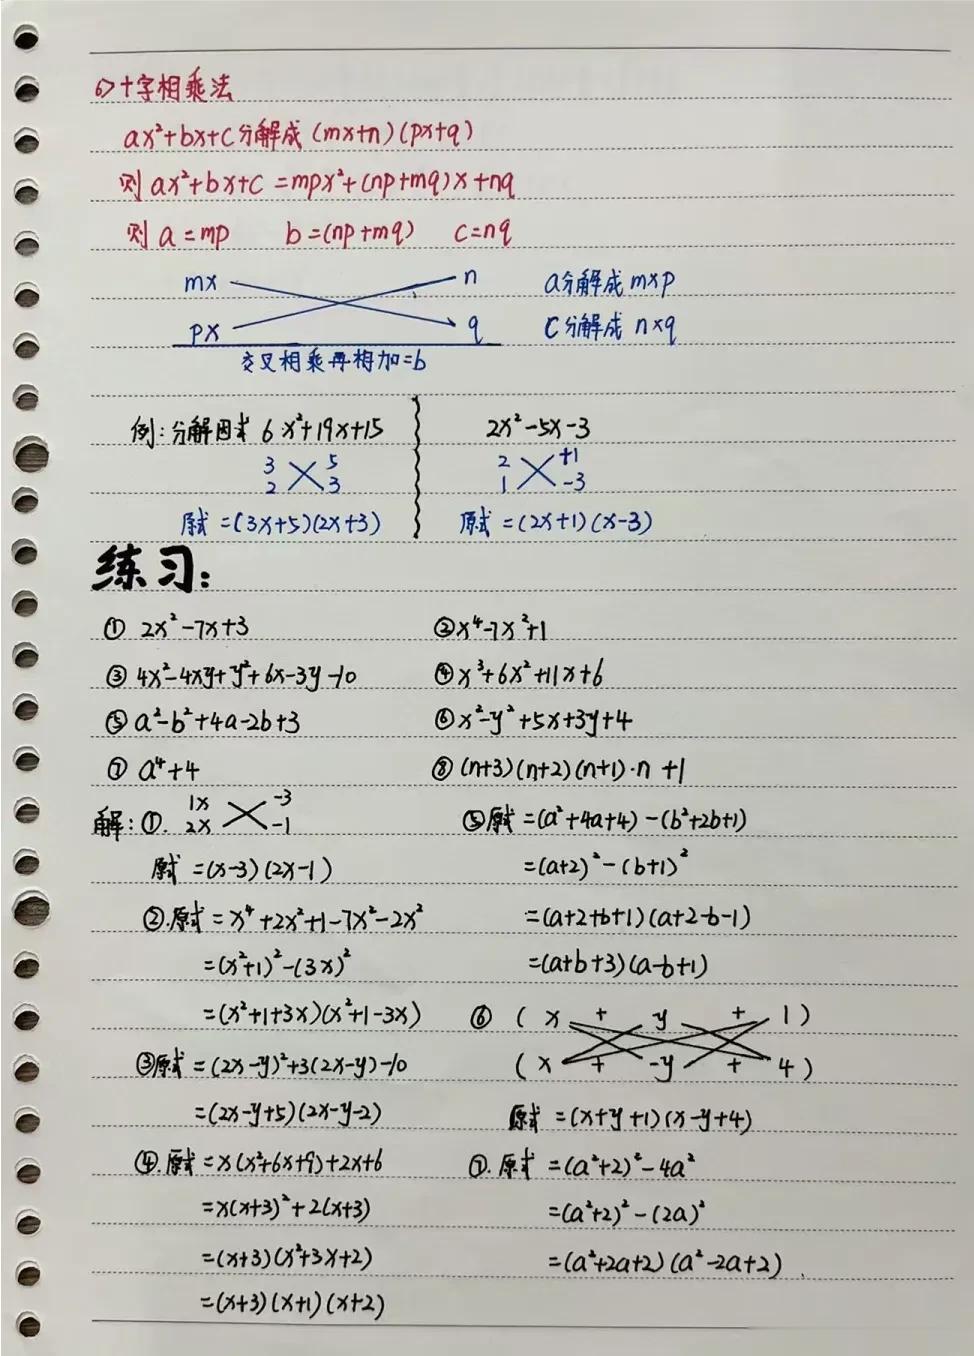 6>十字相乘法
ax²+bx+c分解成(mx+n)(px+q)
则ax²+bx+c=mpx²+(np+mq)x+nq
则a=mp b=(np+mq) c=nq
mx n a分解成m×p
px q c分解成n×q
交叉相乘再相加=b
例:分解因式6x²+19x+15 2x²-5x-3
3 5 2 +1
2 3 1 -3
原式=(3x+5)(2x+3) 原式=(2x+1)(x-3)
练习:
① 2x²-7x+3 ②x⁴-7x²+1
③ 4x²-4xy+y²+6x-3y-10 ④x³+6x²+11x+6
⑤ a²-b²+4a-2b+3 ⑥x²-y²+5x+3y+4
⑦ a⁴+4 ⑧(n+3)(n+2)(n+1)·n+1
解:①. 1x -3
2x -1
原式=(x-3)(2x-1)
②.原式=x⁴+2x²+1-7x²-2x²
=(x²+1)²-(3x)²
=(x²+1+3x)(x²+1-3x)
③原式=(2x-y)²+3(2x-y)-10
=(2x-y+5)(2x-y-2)
④.原式=x(x²+6x+9)+2x+6
=x(x+3)²+2(x+3)
=(x+3)(x²+3x+2)
=(x+3)(x+1)(x+2)
⑤原式=(a²+4a+4)-(b²+2b+1)
=(a+2)²-(b+1)²
=(a+2+b+1)(a+2-b-1)
=(a+b+3)(a-b+1)
⑥ (x + y + 1)
(x + -y + 4)
原式=(x+y+1)(x-y+4)
⑦.原式=(a²+2)²-4a²
=(a²+2)²-(2a)²
=(a²+2a+2)(a²-2a+2)